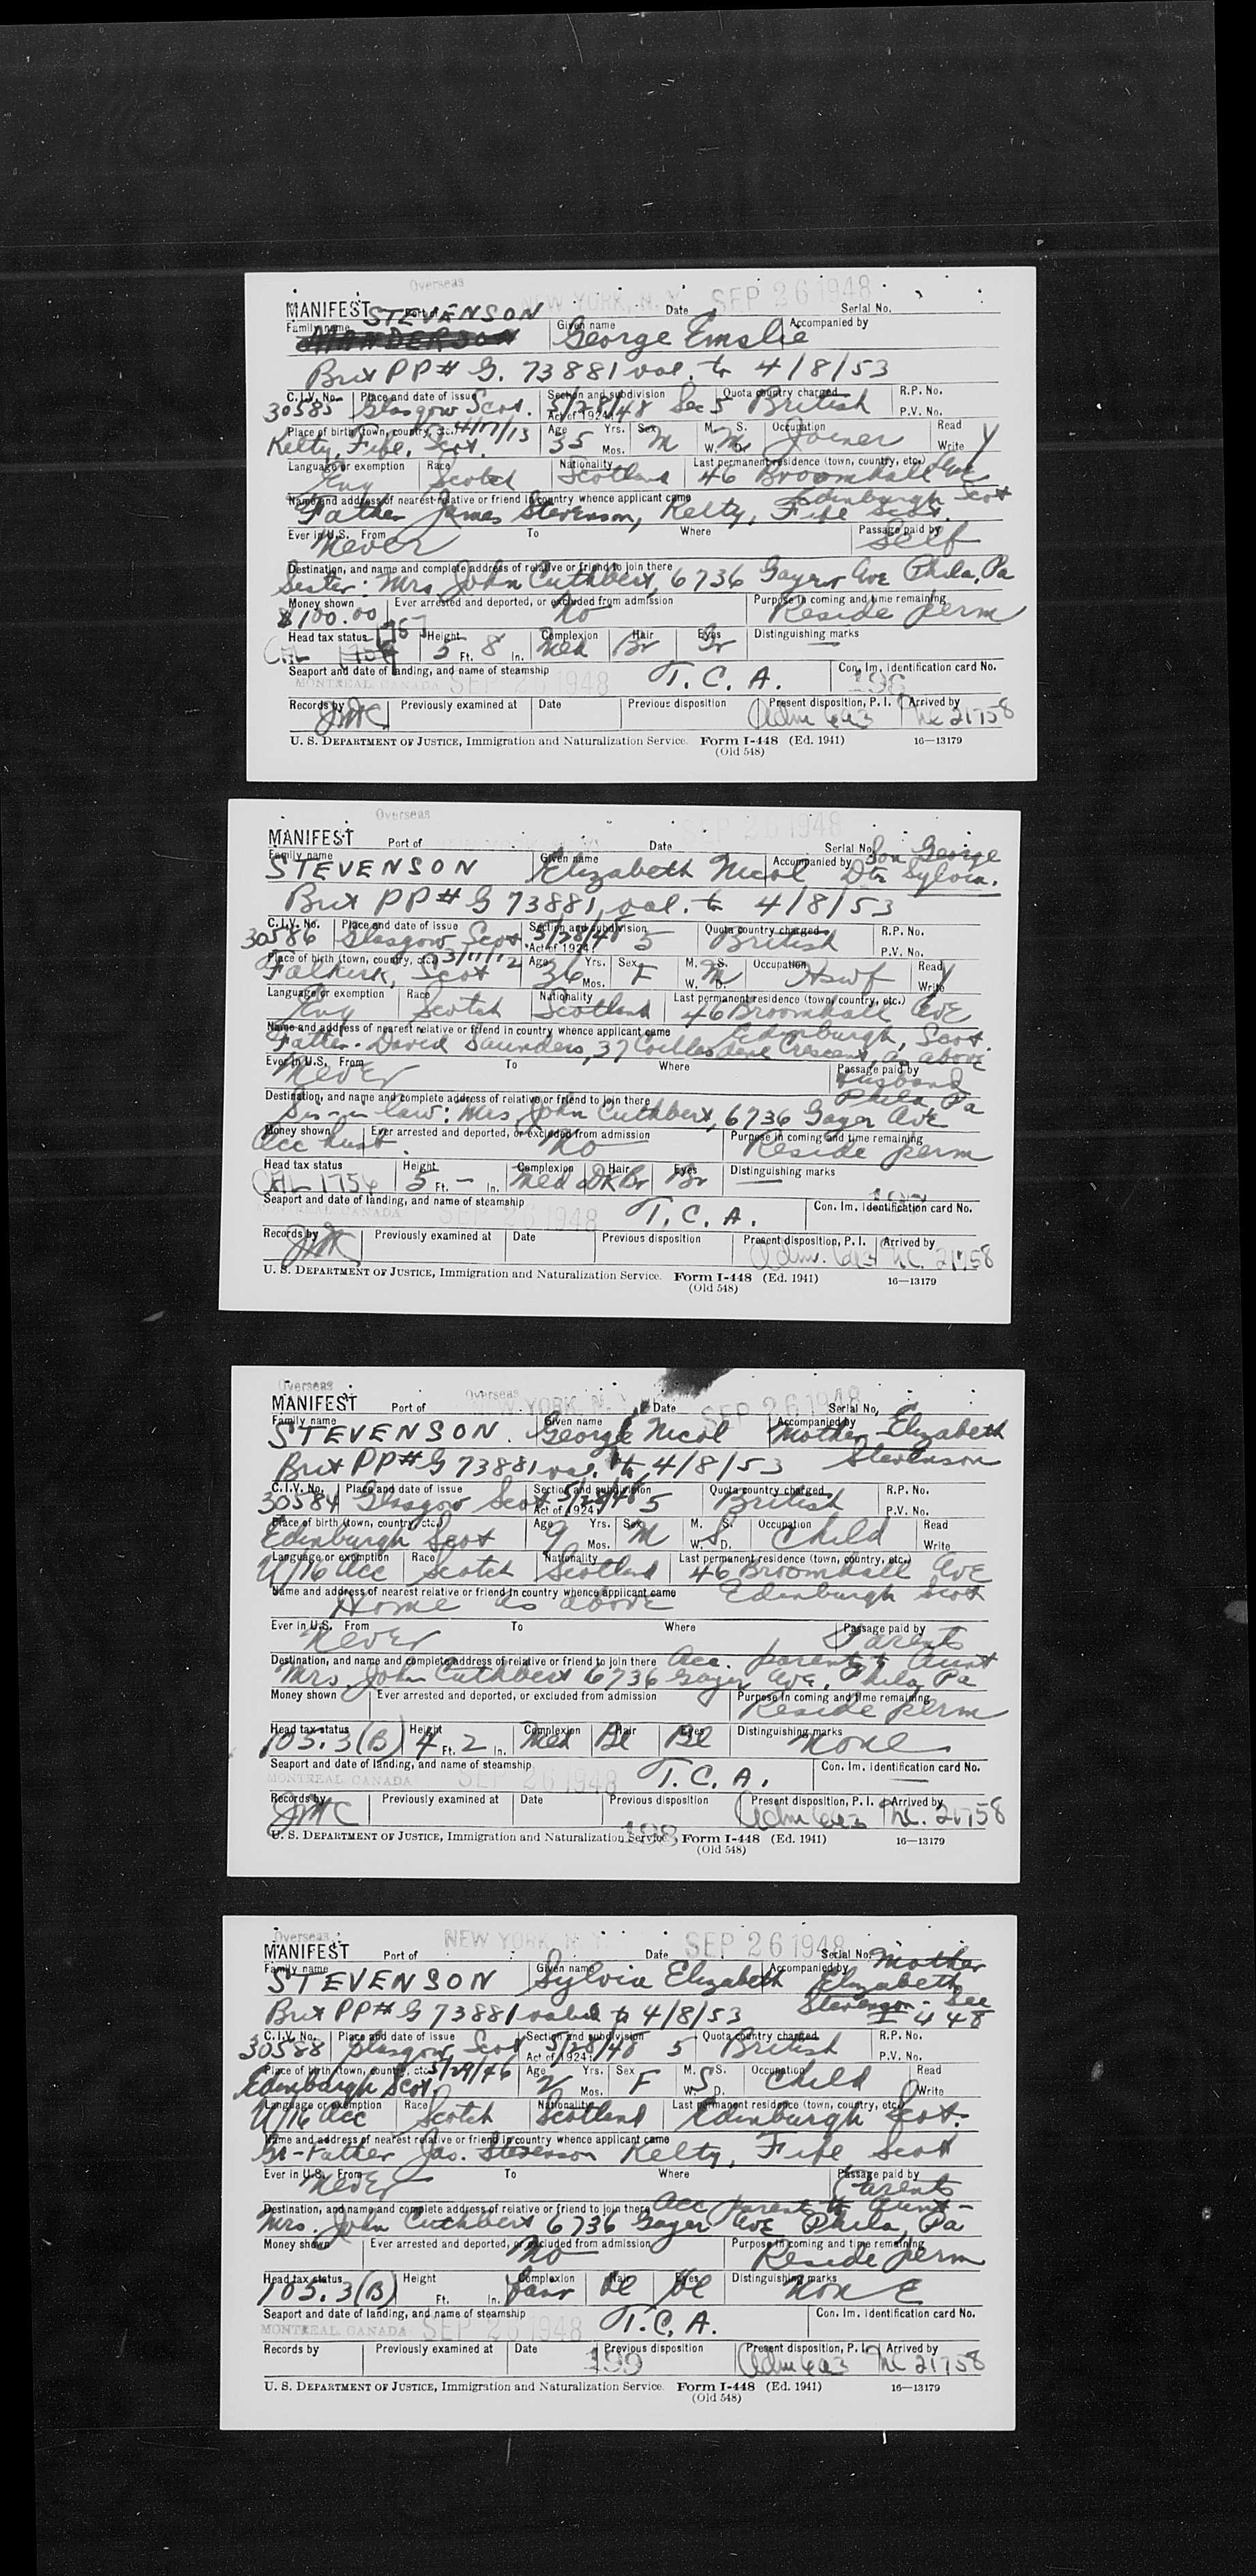 Overseas
NEW YORK, N.Y. SEP 26 1948
MANIFEST Port of Date Serial No.
STEVENSON
Family name Given name George Emslie Accompanied by
Brit PP# G. 73881 val. to 4/8/53
C.I.V. No. Place and date of issue Section and subdivision Quota country charged R.P. No.
30585 Glasgow Scot. 5/28/48 Act of 1924: Sec 5 British P.V. No.
Place of birth (town, country, etc.) 4/17/13 Age Yrs. Sex M. S. Occupation Read
Kelty, Fife, Scot. 35 Mos. M W. D. M Joiner Write y
Language or exemption Race Nationality Last permanent residence (town, country, etc.)
Eng Scotch Scotland 46 Broomhall Ave
Name and address of nearest relative or friend in country whence applicant came Edinburgh Scot
Father James Stevenson, Kelty, Fife Scot.
Ever in U.S. From To Where Passage paid by
Never Self
Destination, and name and complete address of relative or friend to join there
Sister: Mrs John Cuthbert, 6736 Gayer Ave Phila, Pa
Money shown Ever arrested and deported, or excluded from admission Purpose in coming and time remaining
$100.00 No Reside perm
Head tax status Height Complexion Hair Eyes Distinguishing marks
1757 5 Ft. 8 In. Med Br Gr —
Seaport and date of landing, and name of steamship Con. Im. Identification card No.
MONTREAL CANADA SEP 26 1948 T.C.A. 196
Records by Previously examined at Date Previous disposition Present disposition, P. I. Arrived by
JMC Adm 21758
U. S. DEPARTMENT OF JUSTICE, Immigration and Naturalization Service. Form I-448 (Ed. 1941) 16—13179
(Old 548)
Overseas
SEP 26 1948
MANIFEST Port of Date Serial No. Son George
Family name Given name Accompanied by
STEVENSON Elizabeth Nicol Dtr Sylvia.
Brit PP# G 73881 val. to 4/8/53
C.I.V. No. Place and date of issue Section and subdivision Quota country charged R.P. No.
30586 Glasgow Scot 5/28/48 Act of 1924: 5 British P.V. No.
Place of birth (town, country, etc.) 3/11/12 Age Yrs. Sex M. S. Occupation Read
Falkirk, Scot 36 Mos. F W. D. M Hswf Write y
Language or exemption Race Nationality Last permanent residence (town, country, etc.)
Eng Scotch Scotland 46 Broomhall Ave
Name and address of nearest relative or friend in country whence applicant came Edinburgh, Scot.
Father- David Saunders, 37 Crescent, as above
Ever in U.S. From To Where Passage paid by
Never Husband
Destination, and name and complete address of relative or friend to join there Phila, Pa
Sis-in law: Mrs John Cuthbert, 6736 Gayer Ave
Money shown Ever arrested and deported, or excluded from admission Purpose in coming and time remaining
Acc husb. No Reside perm
Head tax status Height Complexion Hair Eyes Distinguishing marks
1756 5 Ft. — In. Med DKBr Br —
Seaport and date of landing, and name of steamship Con. Im. Identification card No.
MONTREAL CANADA SEP 26 1948 T.C.A.
Records by Previously examined at Date Previous disposition Present disposition, P. I. Arrived by
JMC Adm. 21758
U. S. DEPARTMENT OF JUSTICE, Immigration and Naturalization Service. Form I-448 (Ed. 1941) 16—13179
(Old 548)
Overseas Overseas
NEW YORK, N.Y. SEP 26 1948
MANIFEST Port of Date Serial No.
Family name Given name Accompanied by
STEVENSON. George Nicol Mother Elizabeth
Brit PP# G 73881 val. to 4/8/53 Stevenson
C.I.V. No. Place and date of issue Section and subdivision Quota country charged R.P. No.
30584 Glasgow Scot 5/28/48 Act of 1924: 5 British P.V. No.
Place of birth (town, country, etc.) Age Yrs. Sex M. S. Occupation Read
Edinburgh Scot 9 Mos. M W. D. S Child Write
Language or exemption Race Nationality Last permanent residence (town, country, etc.)
U/16 acc Scotch Scotland 46 Broomhall Ave
Name and address of nearest relative or friend in country whence applicant came Edinburgh Scot
Home as above
Ever in U.S. From To Where Passage paid by
Never Parents
Destination, and name and complete address of relative or friend to join there Acc. parents to Aunt
Mrs. John Cuthbert 6736 Gayer Ave, Phila Pa
Money shown Ever arrested and deported, or excluded from admission Purpose in coming and time remaining
Reside perm
Head tax status Height Complexion Hair Eyes Distinguishing marks
105.3(B) 4 Ft. 2 In. Med Bl Bl None
Seaport and date of landing, and name of steamship Con. Im. Identification card No.
MONTREAL CANADA SEP 26 1948 T.C.A. —
Records by Previously examined at Date Previous disposition Present disposition, P. I. Arrived by
JMC Adm 21758
198
U. S. DEPARTMENT OF JUSTICE, Immigration and Naturalization Service. Form I-448 (Ed. 1941) 16—13179
(Old 548)
Overseas
NEW YORK, N.Y. SEP 26 1948
MANIFEST Port of Date Serial No. Mother
Family name Given name Accompanied by
STEVENSON Sylvia Elizabeth Elizabeth
Brit PP# G 73881 valid to 4/8/53 Stevenson - See I 448
C.I.V. No. Place and date of issue Section and subdivision Quota country charged R.P. No.
30588 Glasgow Scot 5/28/48 Act of 1924: 5 British P.V. No.
Place of birth (town, country, etc.) 5/29/46 Age Yrs. Sex M. S. Occupation Read
Edinburgh Scot. 2 Mos. F W. D. S Child Write
Language or exemption Race Nationality Last permanent residence (town, country, etc.)
U/16 acc Scotch Scotland Edinburgh Scot.
Name and address of nearest relative or friend in country whence applicant came
Gr-Father Jas. Stevenson Kelty, Fife Scot
Ever in U.S. From To Where Passage paid by
Never Parents
Destination, and name and complete address of relative or friend to join there Acc parents to Aunt-
Mrs. John Cuthbert 6736 Gayer Ave Phila, Pa
Money shown Ever arrested and deported, or excluded from admission Purpose in coming and time remaining
No Reside perm
Head tax status Height Complexion Hair Eyes Distinguishing marks
105.3(B) Ft. In. Fair Bl Bl None
Seaport and date of landing, and name of steamship Con. Im. Identification card No.
MONTREAL CANADA SEP 26 1948 T.C.A.
Records by Previously examined at Date Previous disposition Present disposition, P. I. Arrived by
199 Adm 21758
U. S. DEPARTMENT OF JUSTICE, Immigration and Naturalization Service. Form I-448 (Ed. 1941) 16—13179
(Old 548)